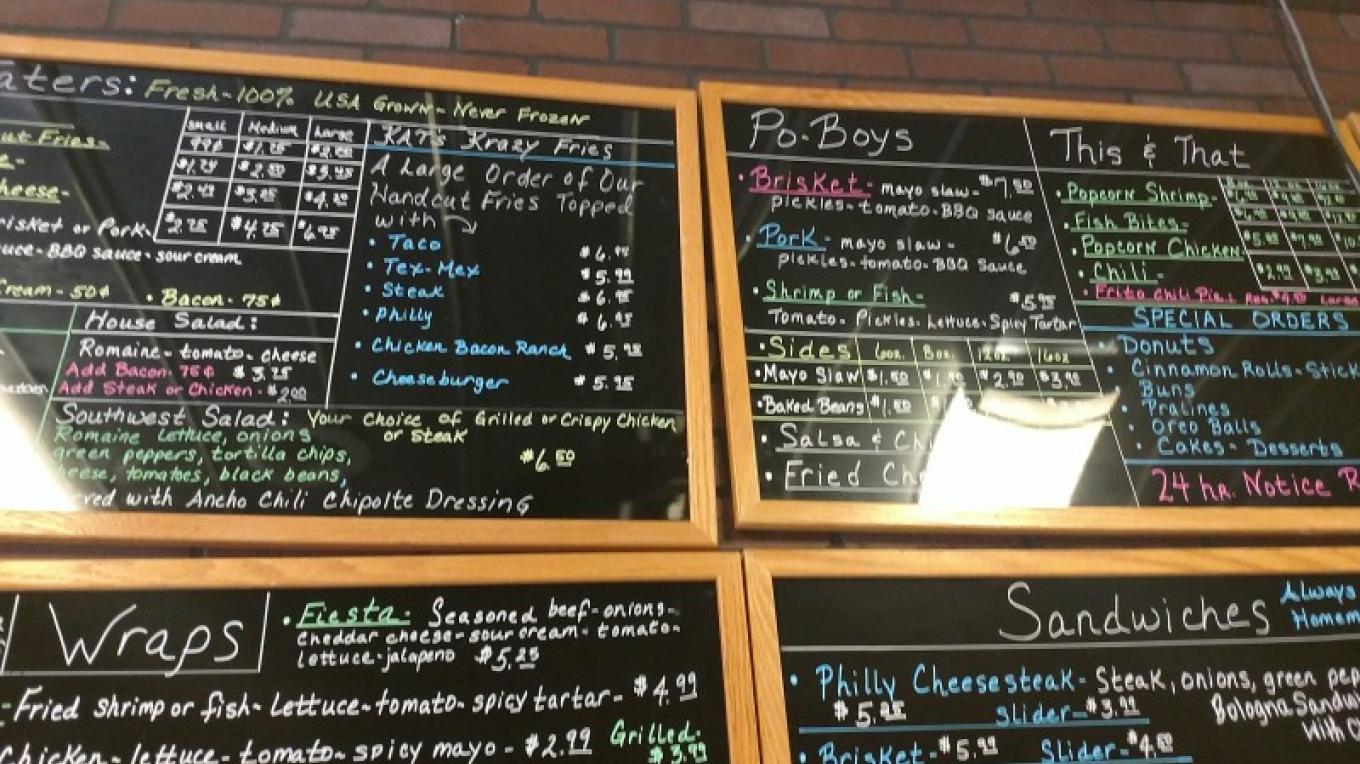 aters: Fresh-100% USA Grown-Never Frozen
ut Fries-
e-
heese-
risket or Pork-
uce-BBQ sauce-sour cream
Cream-50¢ • Bacon-75¢
Small Medium Large
99¢ $1.75
$2.75 $4.75 $6.75
KAT's Krazy Fries
A Large Order of Our
Handcut Fries Topped
with
• Taco
• Tex-Mex $5.99
• Steak
• Philly
• Chicken Bacon Ranch
• Cheeseburger
House Salad:
Romaine-tomato-cheese
Add Bacon-75¢
Add Steak or Chicken-$2.00
Southwest Salad: Your Choice of Grilled or Crispy Chicken
or Steak
Romaine Lettuce, onions
green peppers, tortilla chips,
eese, tomatoes, black beans,
$6.50
rved with Ancho Chili Chipolte Dressing
Po-Boys
• Brisket-mayo slaw-$7.50
pickles-tomato-BBQ Sauce
• Pork-mayo slaw- $6.50
pickles-tomato-BBQ Sauce
• Shrimp or Fish- $5.95
Tomato-Pickles-Lettuce-Spicy Tartar
• Sides 6oz. 8oz. 12oz 16oz
• Mayo Slaw $1.50
• Baked Beans $1.50
• Salsa & Chi
• Fried Ch
This & That
• Popcorn Shrimp-
• Fish Bites-
• Popcorn Chicken
• Chili- $2.99
• Frito Chili Pie:
SPECIAL ORDERS
• Donuts
• Cinnamon Rolls-Stick
Buns
• Pralines
• Oreo Balls
• Cakes-Desserts
24 hr. Notice R
Wraps
• Fiesta-Seasoned beef-onions-
cheddar cheese-sour cream-tomato-
lettuce-jalapeno $5.25
-Fried shrimp or fish-Lettuce-tomato-spicy tartar-$4.99
Chicken-lettuce-tomato-spicy mayo-$2.99 Grilled-
$3.99
Sandwiches
Always
Homem
• Philly Cheesesteak-Steak, onions, green pep
Slider-$3.99
Bologna Sandwi
With C
• Brisket-$5.99 Slider-